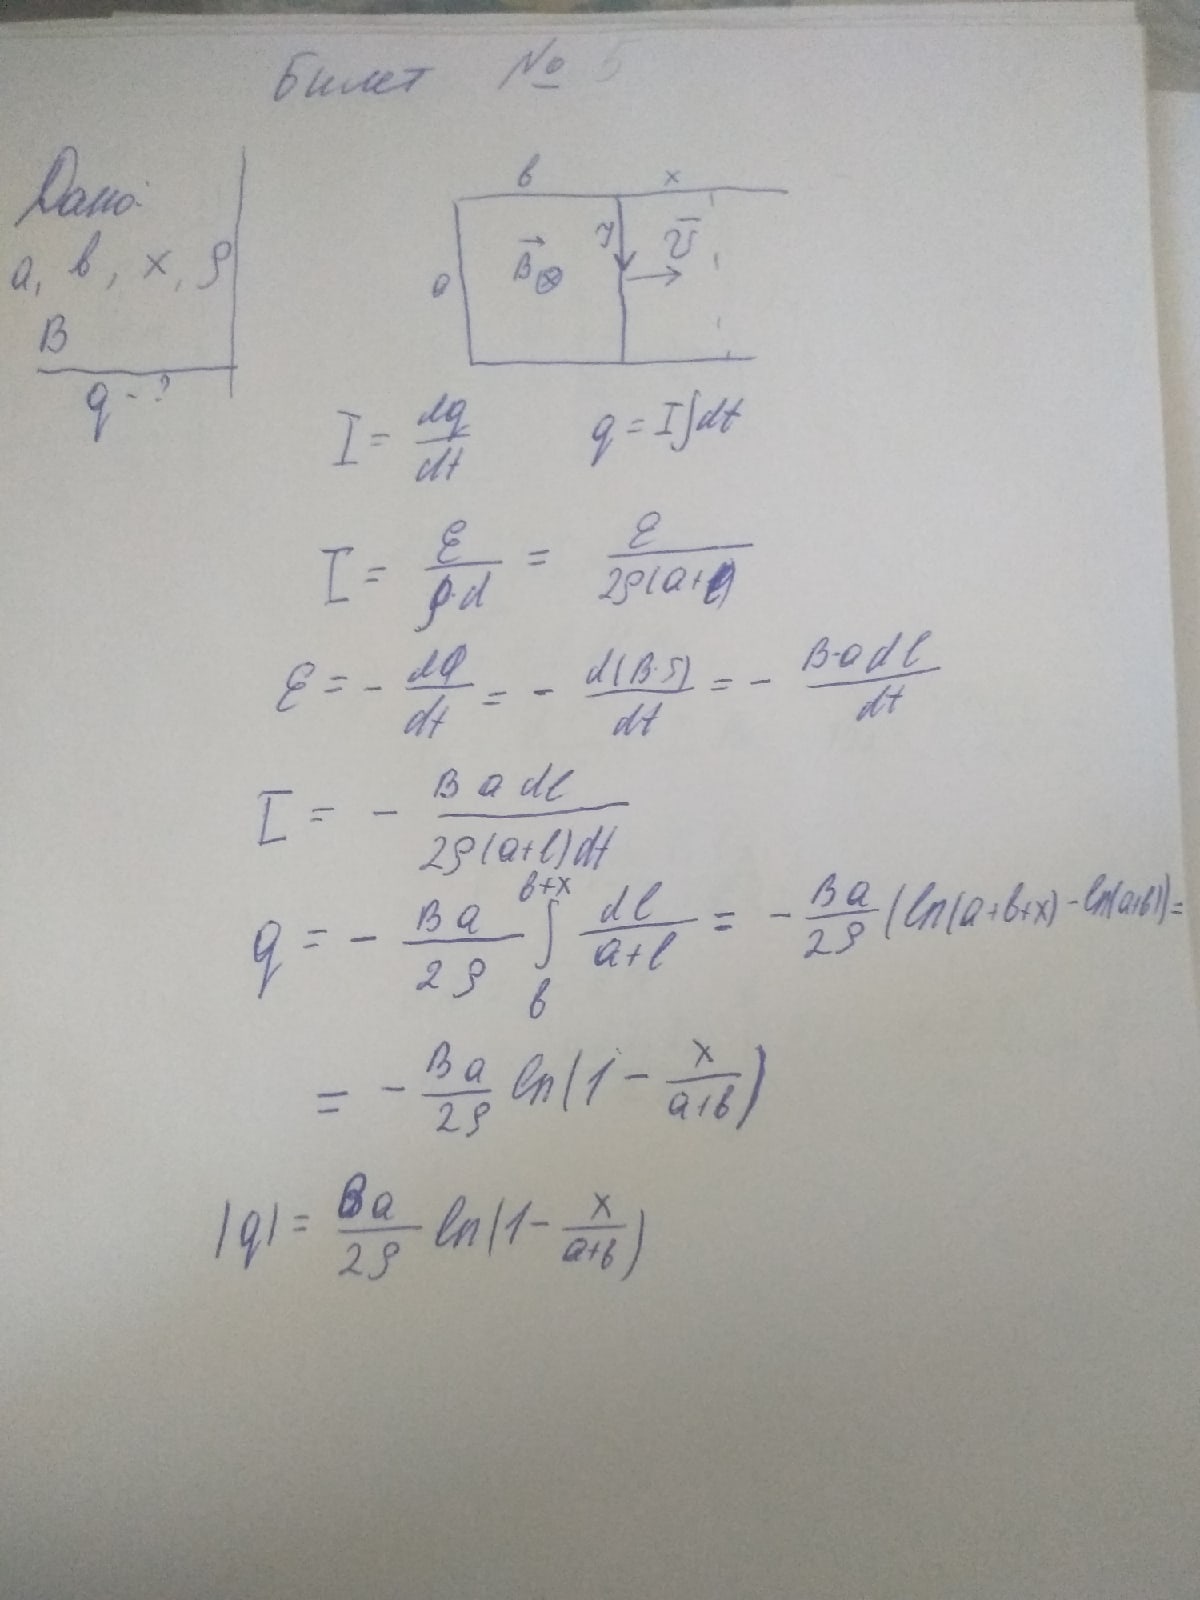 Билет № 5
Дано:
a, в, x, ρ
B
q - ?
в x
a B⃗ ⊗ I v⃗
I = dq/dt q = I∫dt
I = ℰ/(ρ·d) = ℰ/(2ρ(a+l))
ℰ = - dΦ/dt = - d(B·S)/dt = - B·a dl/dt
I = - B a dl/(2ρ(a+l)dt)
q = - Ba/2ρ ∫_в^(в+x) dl/(a+l) = - Ba/2ρ (ln(a+в+x) - ln(a+в)) =
= - Ba/2ρ ln(1 - x/(a+в))
|q| = Ba/2ρ ln(1 - x/(a+в))